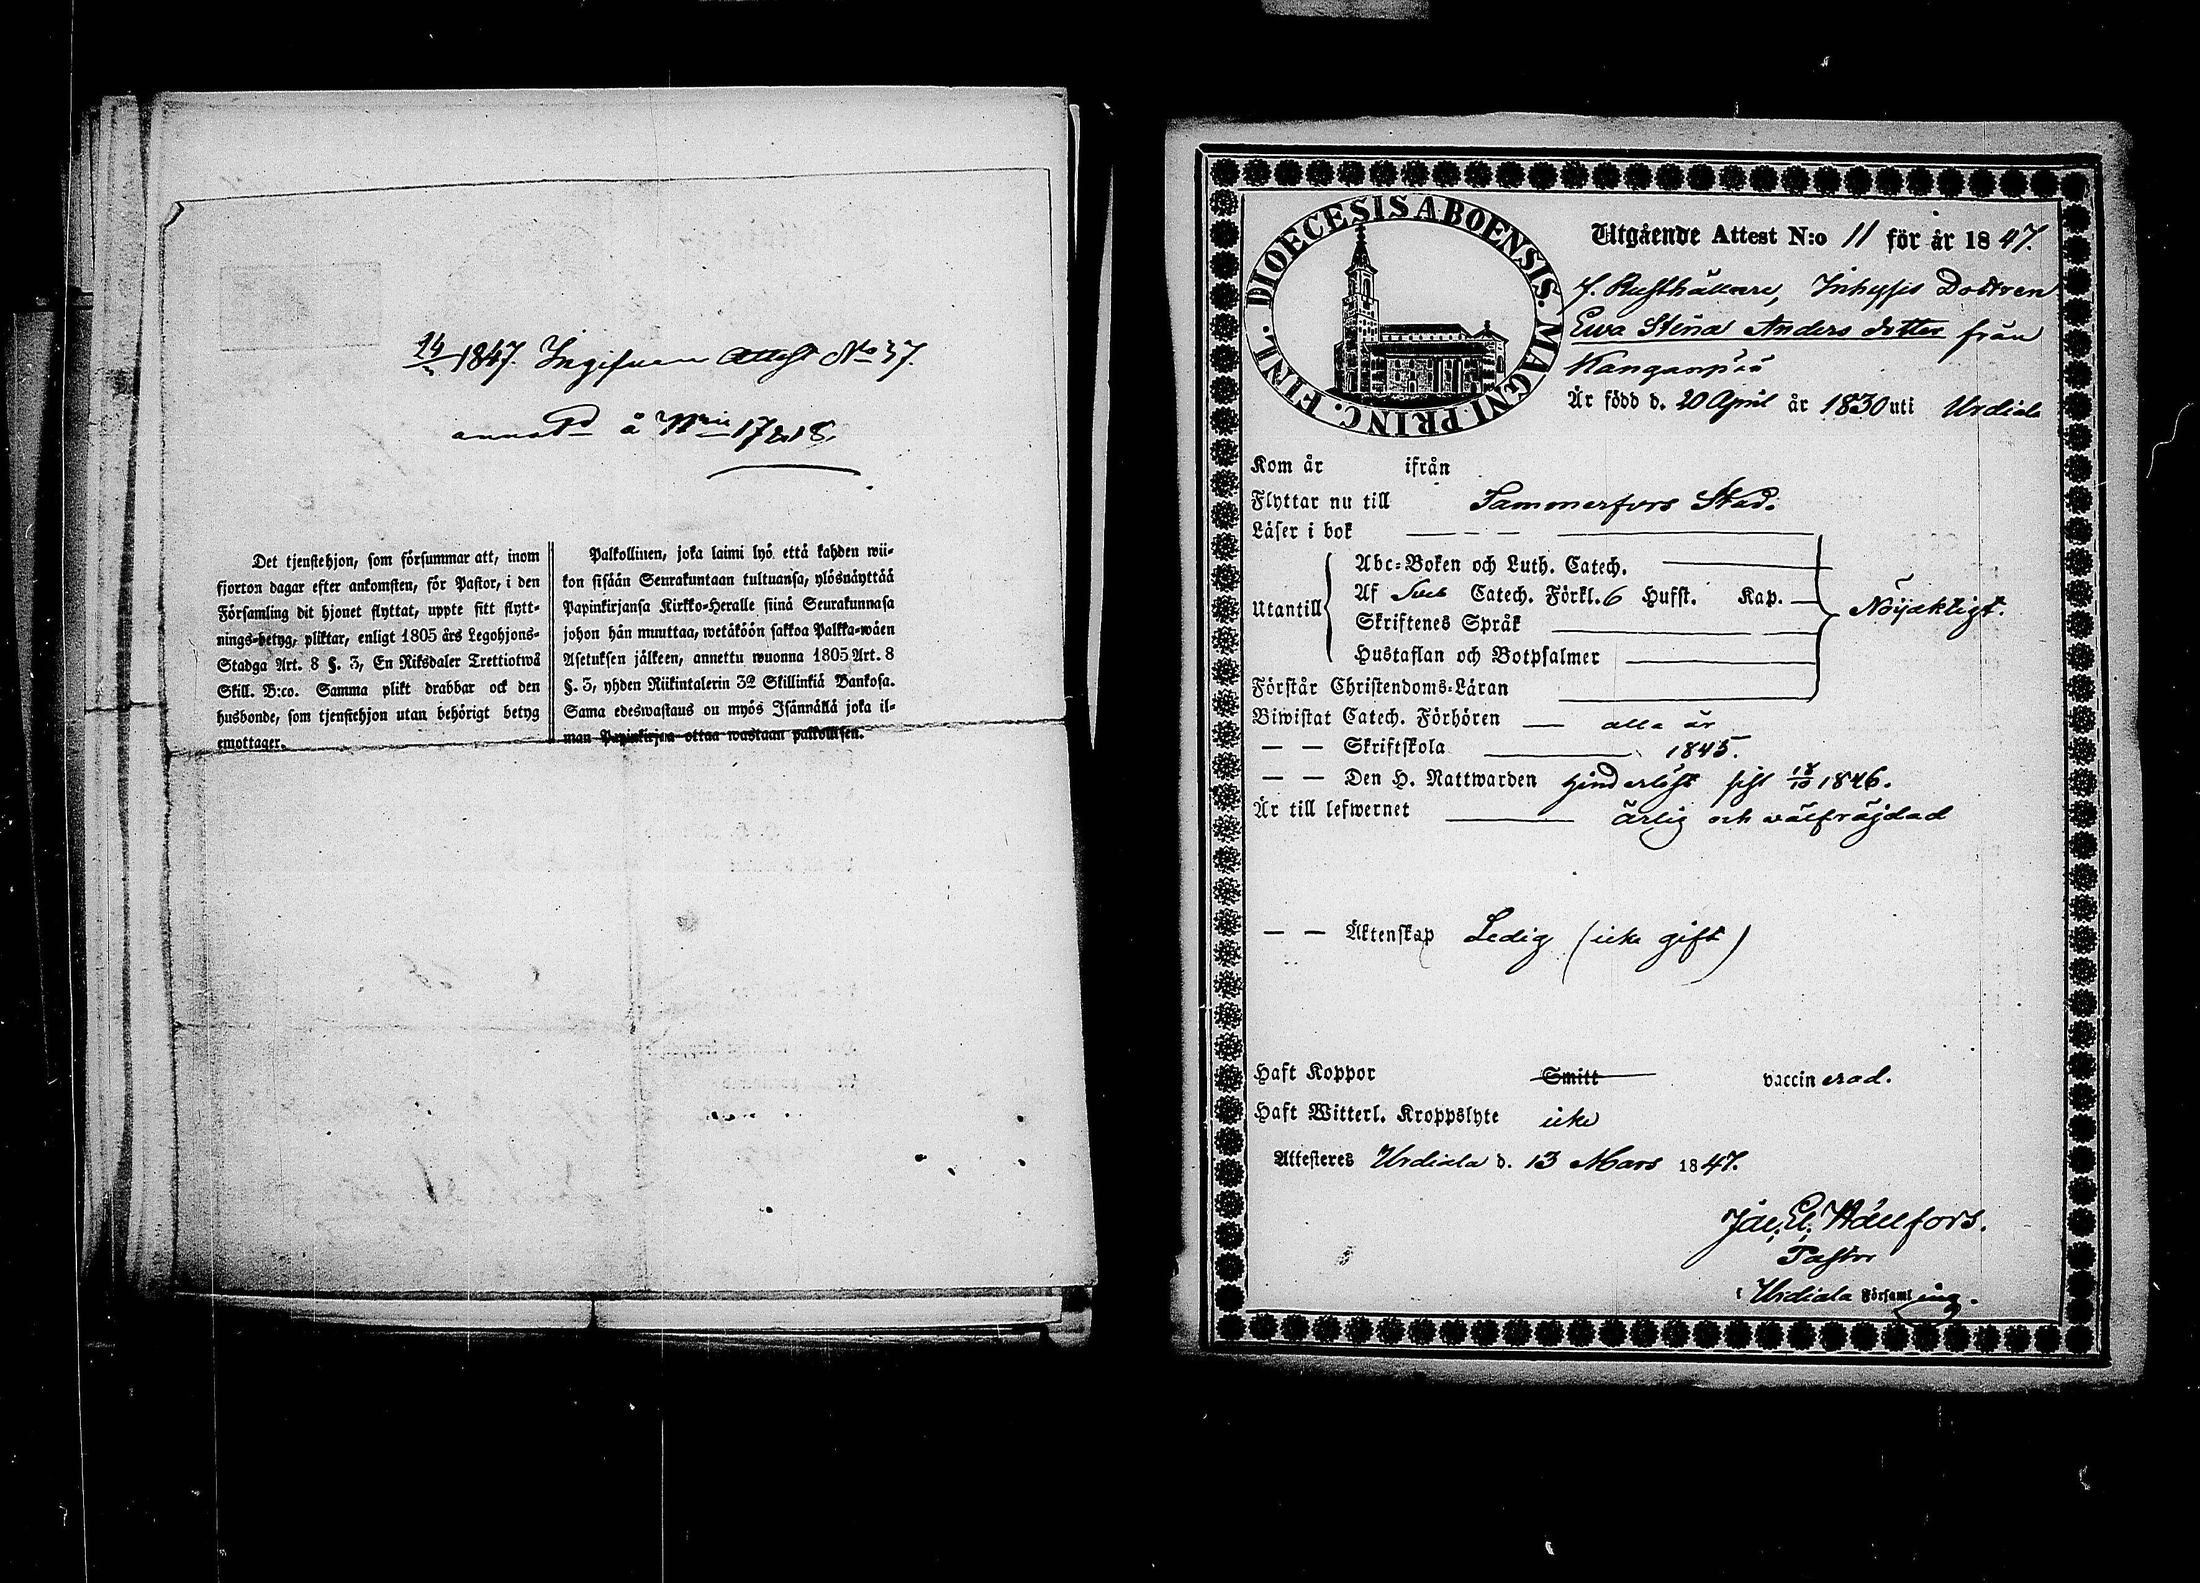 24/ 1847. Ingifven Attest No 37.
annotd å 17 & 18.
Det tjenstehjon, som försummar att, inom
fjorton dagar efter ankomsten, för Pastor, i den
Församling dit hjonet flyttat, uppte sitt flytt-
nings-betyg, pliktar, enligt 1805 års Legohjons-
Stadga Art. 8 §. 3, En Riksdaler Trettiotwå
Skill. B:co. Samma plikt drabbar ock den
husbonde, som tjenstehjon utan behörigt betyg
emottager.
Palkollinen, joka laimi lyö että kahden wii-
kon sisään Seurakuntaan tultuansa, ylösnäyttää
Papinkirjansa Kirkko-Heralle siinä Seurakunnasa
johon hän muuttaa, wetäköön sakkoa Palkka-wäen
Asetuksen jälkeen, annettu wuonna 1805 Art. 8
§. 3, yhden Riikintalerin 32 Skillinkiä Bankosa.
Sama edeswastaus on myös Isännällä joka il-
man Papinkirjaa ottaa wastaan palkollisen.
DIOECESIS ABOENSIS. MAGNI. PRINC. FINL.
Utgående Attest N:o 11 för år 1847.
f. Rusthållare, Inhyses Dottren
Ewa Stina Anders dotter från
Kangaspää
Är född d. 20 April år 1830 uti Urdiala
Kom år ifrån
Flyttar nu till Tammerfors Stad.
Läser i bok
Utantill
Abc-Boken och Luth. Catech.
Af Sveb Catech. Förkl. 6 Hufst. Kap.
Skriftenes Språk
Hustaflan och Botpsalmer
Nöjaktigt.
Förstår Christendoms-Läran
Biwistat Catech. Förhören alla år
— — Skriftskola 1845.
— — Den H. Nattwarden hinderlöst sist 18/10 1846.
Är till lefwernet ärlig och välfräjdad
— — Äktenskap Ledig (icke gift)
Haft Koppor Smitt vaccinerad.
Haft Witterl. Kroppslyte icke
Attesteres Urdiala d. 13 Mars 1847.
Jac. El. Wällfors.
Pastor
i Urdiala Församling.